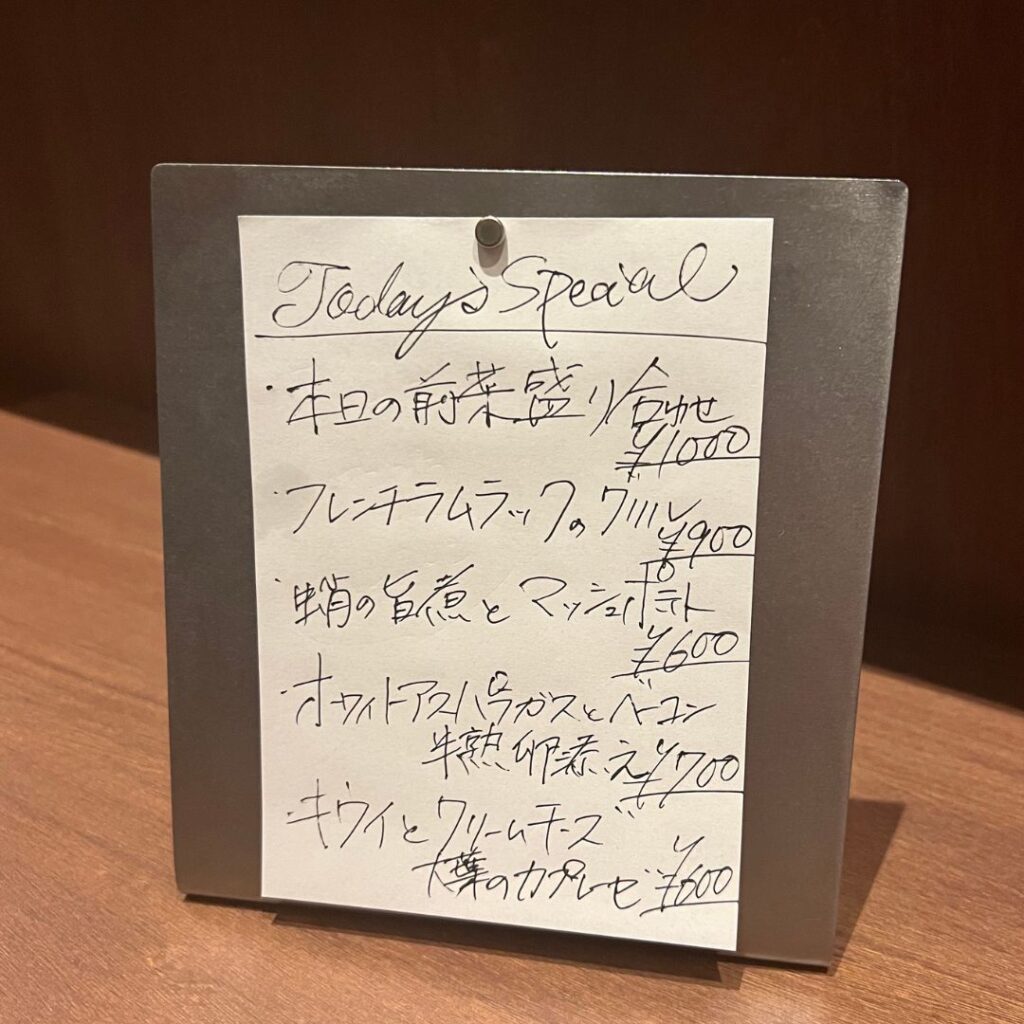 Today's Special
・本日の前菜盛り合わせ
¥1000
・フレンチラムラックのグリル
¥900
・蛸の旨煮とマッシュポテト
¥600
・ホワイトアスパラガスとベーコン
半熟卵添え ¥700
・キウイとクリームチーズ
大葉のカプレーゼ ¥600